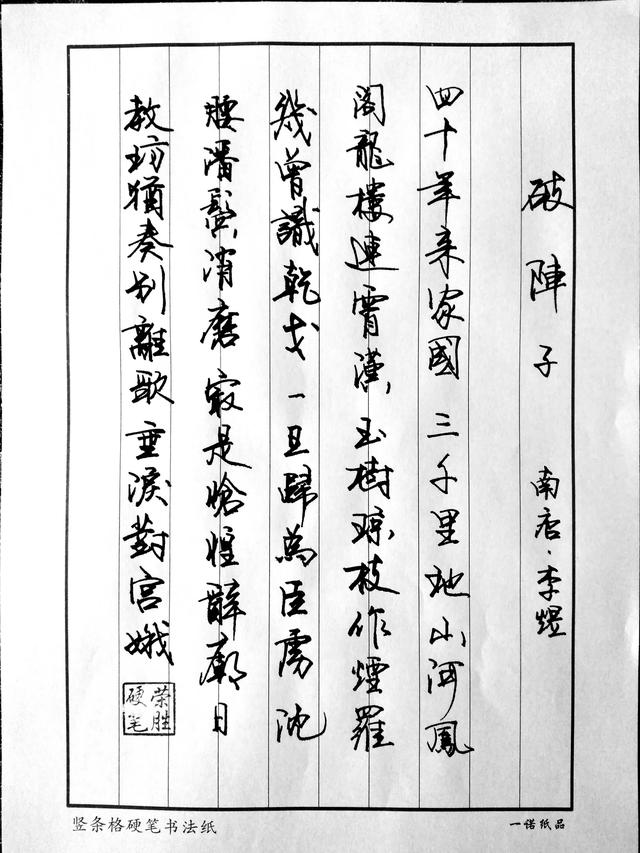 破陣子 南唐·李煜
四十年来家國三千里地山河鳳
閣龍樓連霄漢玉樹琼枝作煙羅
幾曾識乾戈一旦歸為臣虜沈
腰潘鬢消磨最是愴惶辭廟日
教坊猶奏别離歌垂淚對宮娥
荣胜硬笔
竖条格硬笔书法纸
一诺纸品